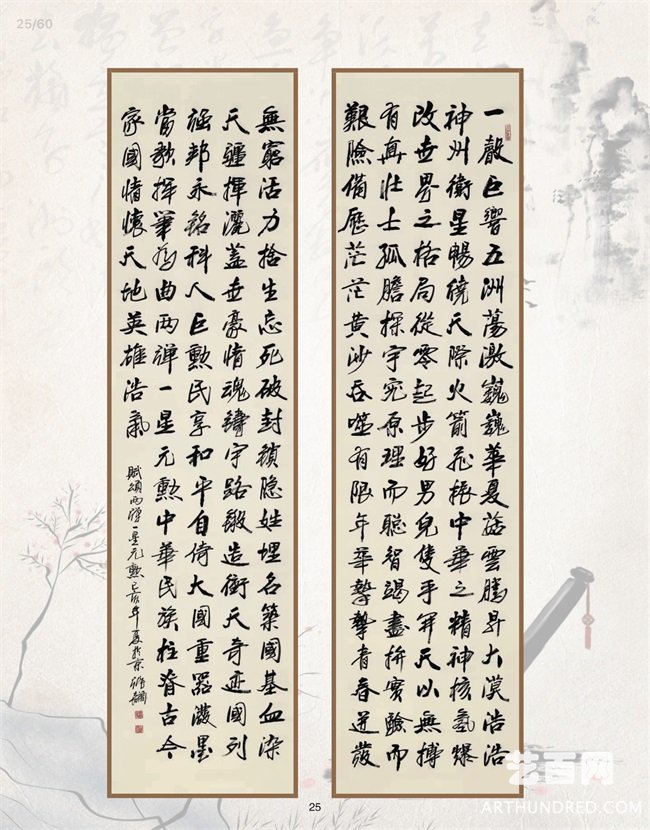 25/60
一聲巨響五洲蕩激巍巍華夏菇雲騰昇大漠浩浩
神州衛星暢繞天際火箭飛振中華之精神核氣爆
改世界之格局從零起步好男兒隻手開天以無搏
有真壯士孤膽探宇究原理而聰智竭盡拚實驗而
艱險備歷茫茫黄沙吞噬有限年華摯摯青春迸發
無窮活力捨生忘死破封鎖隐姓埋名築國基血染
天疆揮灑蓋世豪情魂鑄宇路鍛造衝天奇迹國列
强邦永銘科人巨勲民享和平自倚大國重器潑墨
當歌揮筆為曲两弹一星元勲中華民族柱脊古今
家國情懷天地英雄浩氣
賦頌两弹一星元勲己亥年夏於京
25
艺百网
ARTHUNDRED.COM